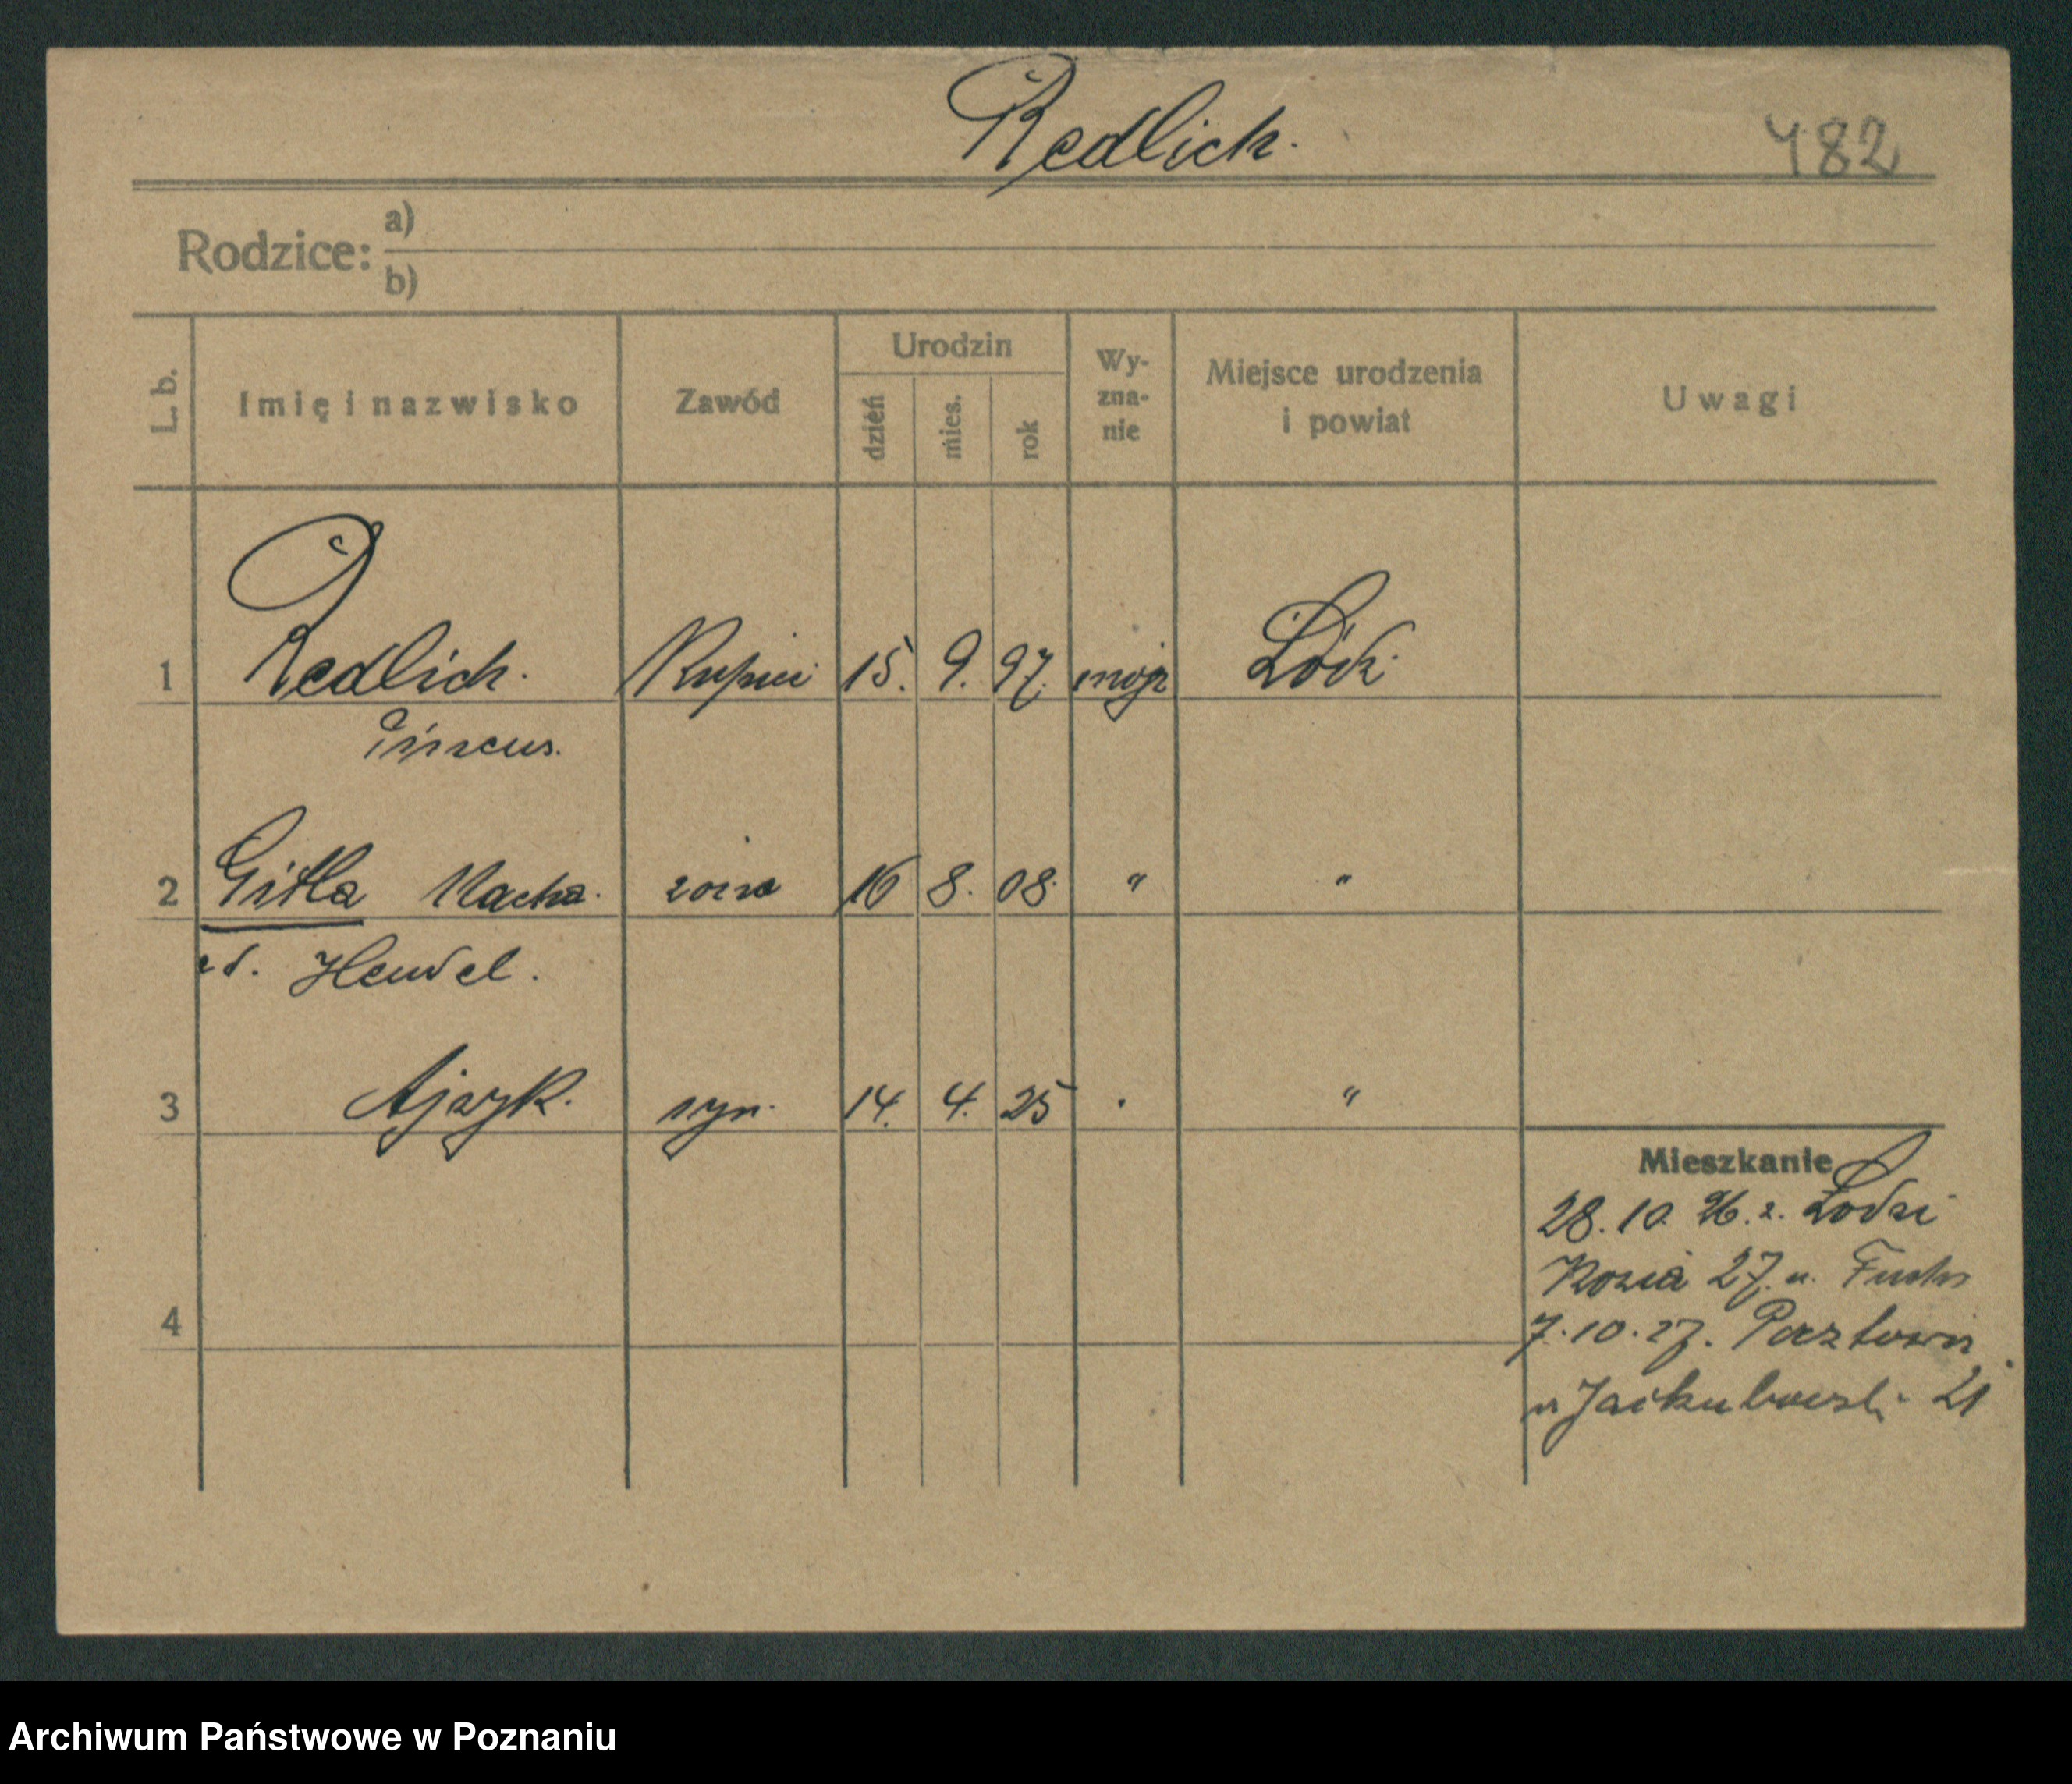 Redlich.
482
Rodzice: a)
b)
L. b. Imię i nazwisko Zawód Urodzin dzień mies. rok Wy-zna-nie Miejsce urodzenia i powiat Uwagi
1 Redlich. Kupiec 15. 9. 97. mojż Łódź.
Pinkus.
2 Gitla Racha. żona 16 8. 08. " "
Hendel.
3 Ajzyk. syn. 14. 4. 25 . "
Mieszkanie
28. 10. 26. z. Łodzi
Kozia 27. u. Fuchs
4
7. 10. 27. Pocztowa
21
Archiwum Państwowe w Poznaniu